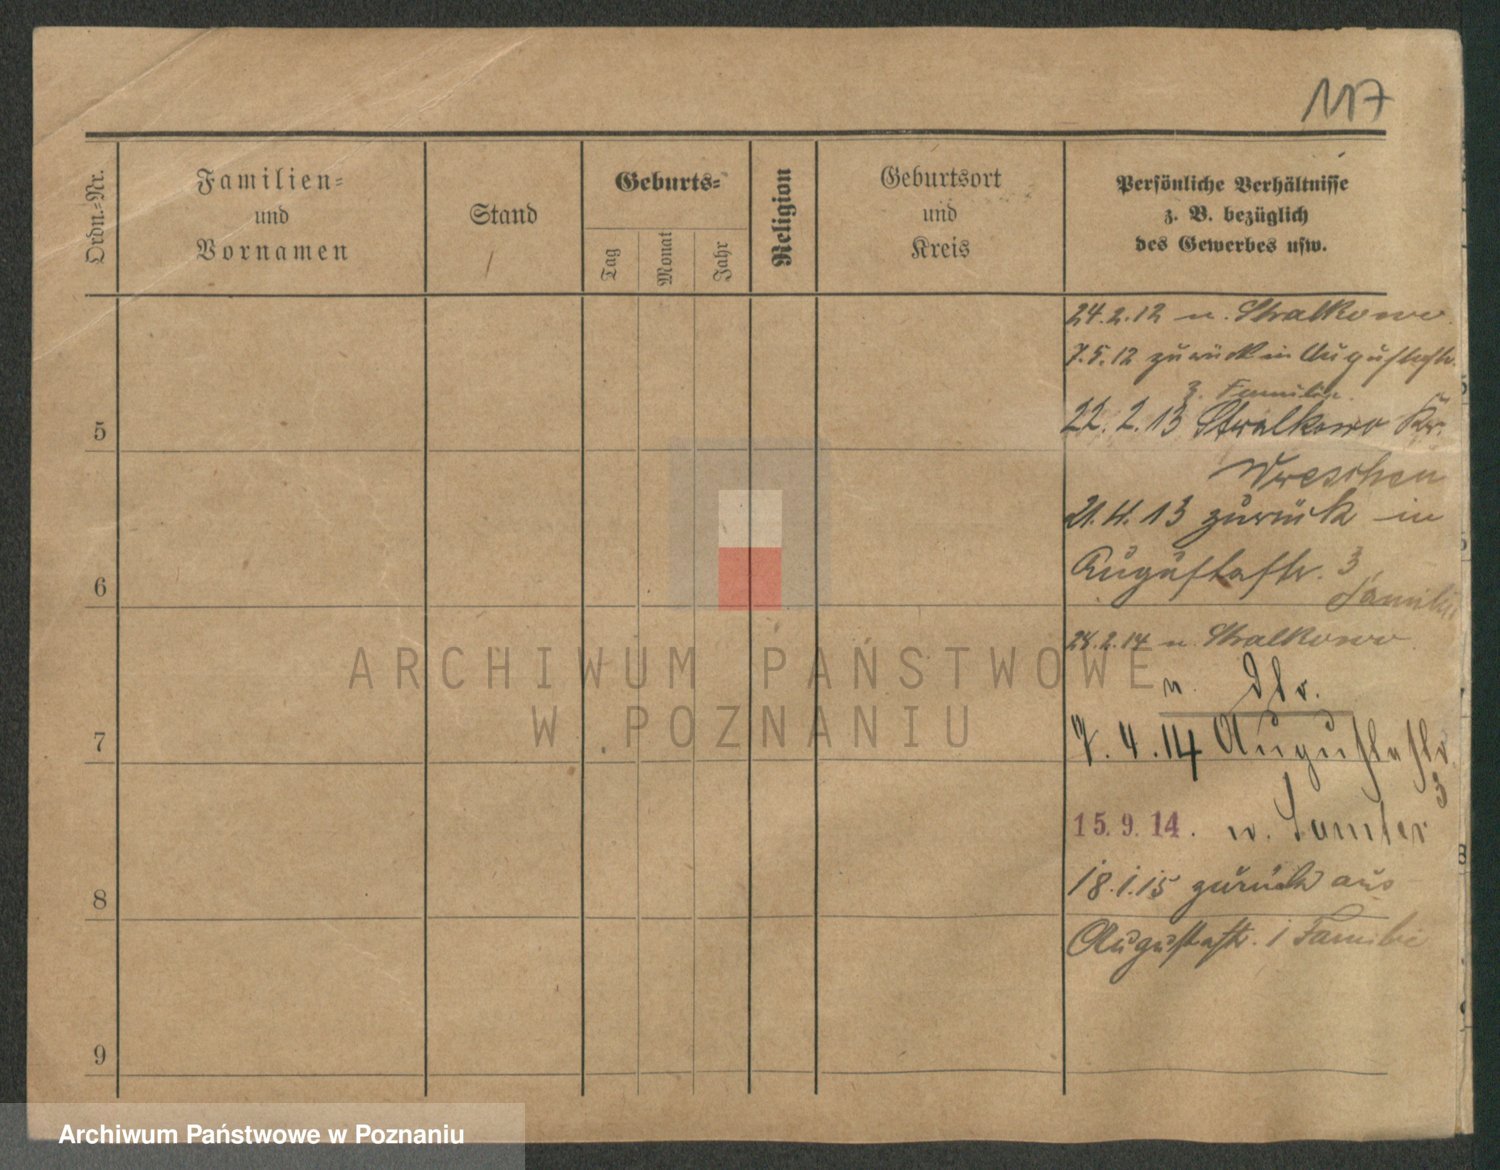 117
Ordn.-Nr.
Familien-
und
Vornamen
Stand
Geburts-
Tag
Monat
Jahr
Religion
Geburtsort
und
Kreis
Persönliche Verhältnisse
z. B. bezüglich
des Gewerbes usw.
24.2.12 n. Stralkowo
7.5.12 zurück in Augustastr.
3. Familie.
5
22.2.13 Stralkowo Kr.
Wreschen
21.4.13 zurück in
6
Augustastr. 3
Familie
28.2.14 n. Stralkowo
ARCHIWUM PAŃSTWOWE
W POZNANIU
7
7.4.14 Augustastr.
3
15.9.14. n. Samter
8
18.1.15 zurück aus
Augustastr. 1 Familie
9
Archiwum Państwowe w Poznaniu